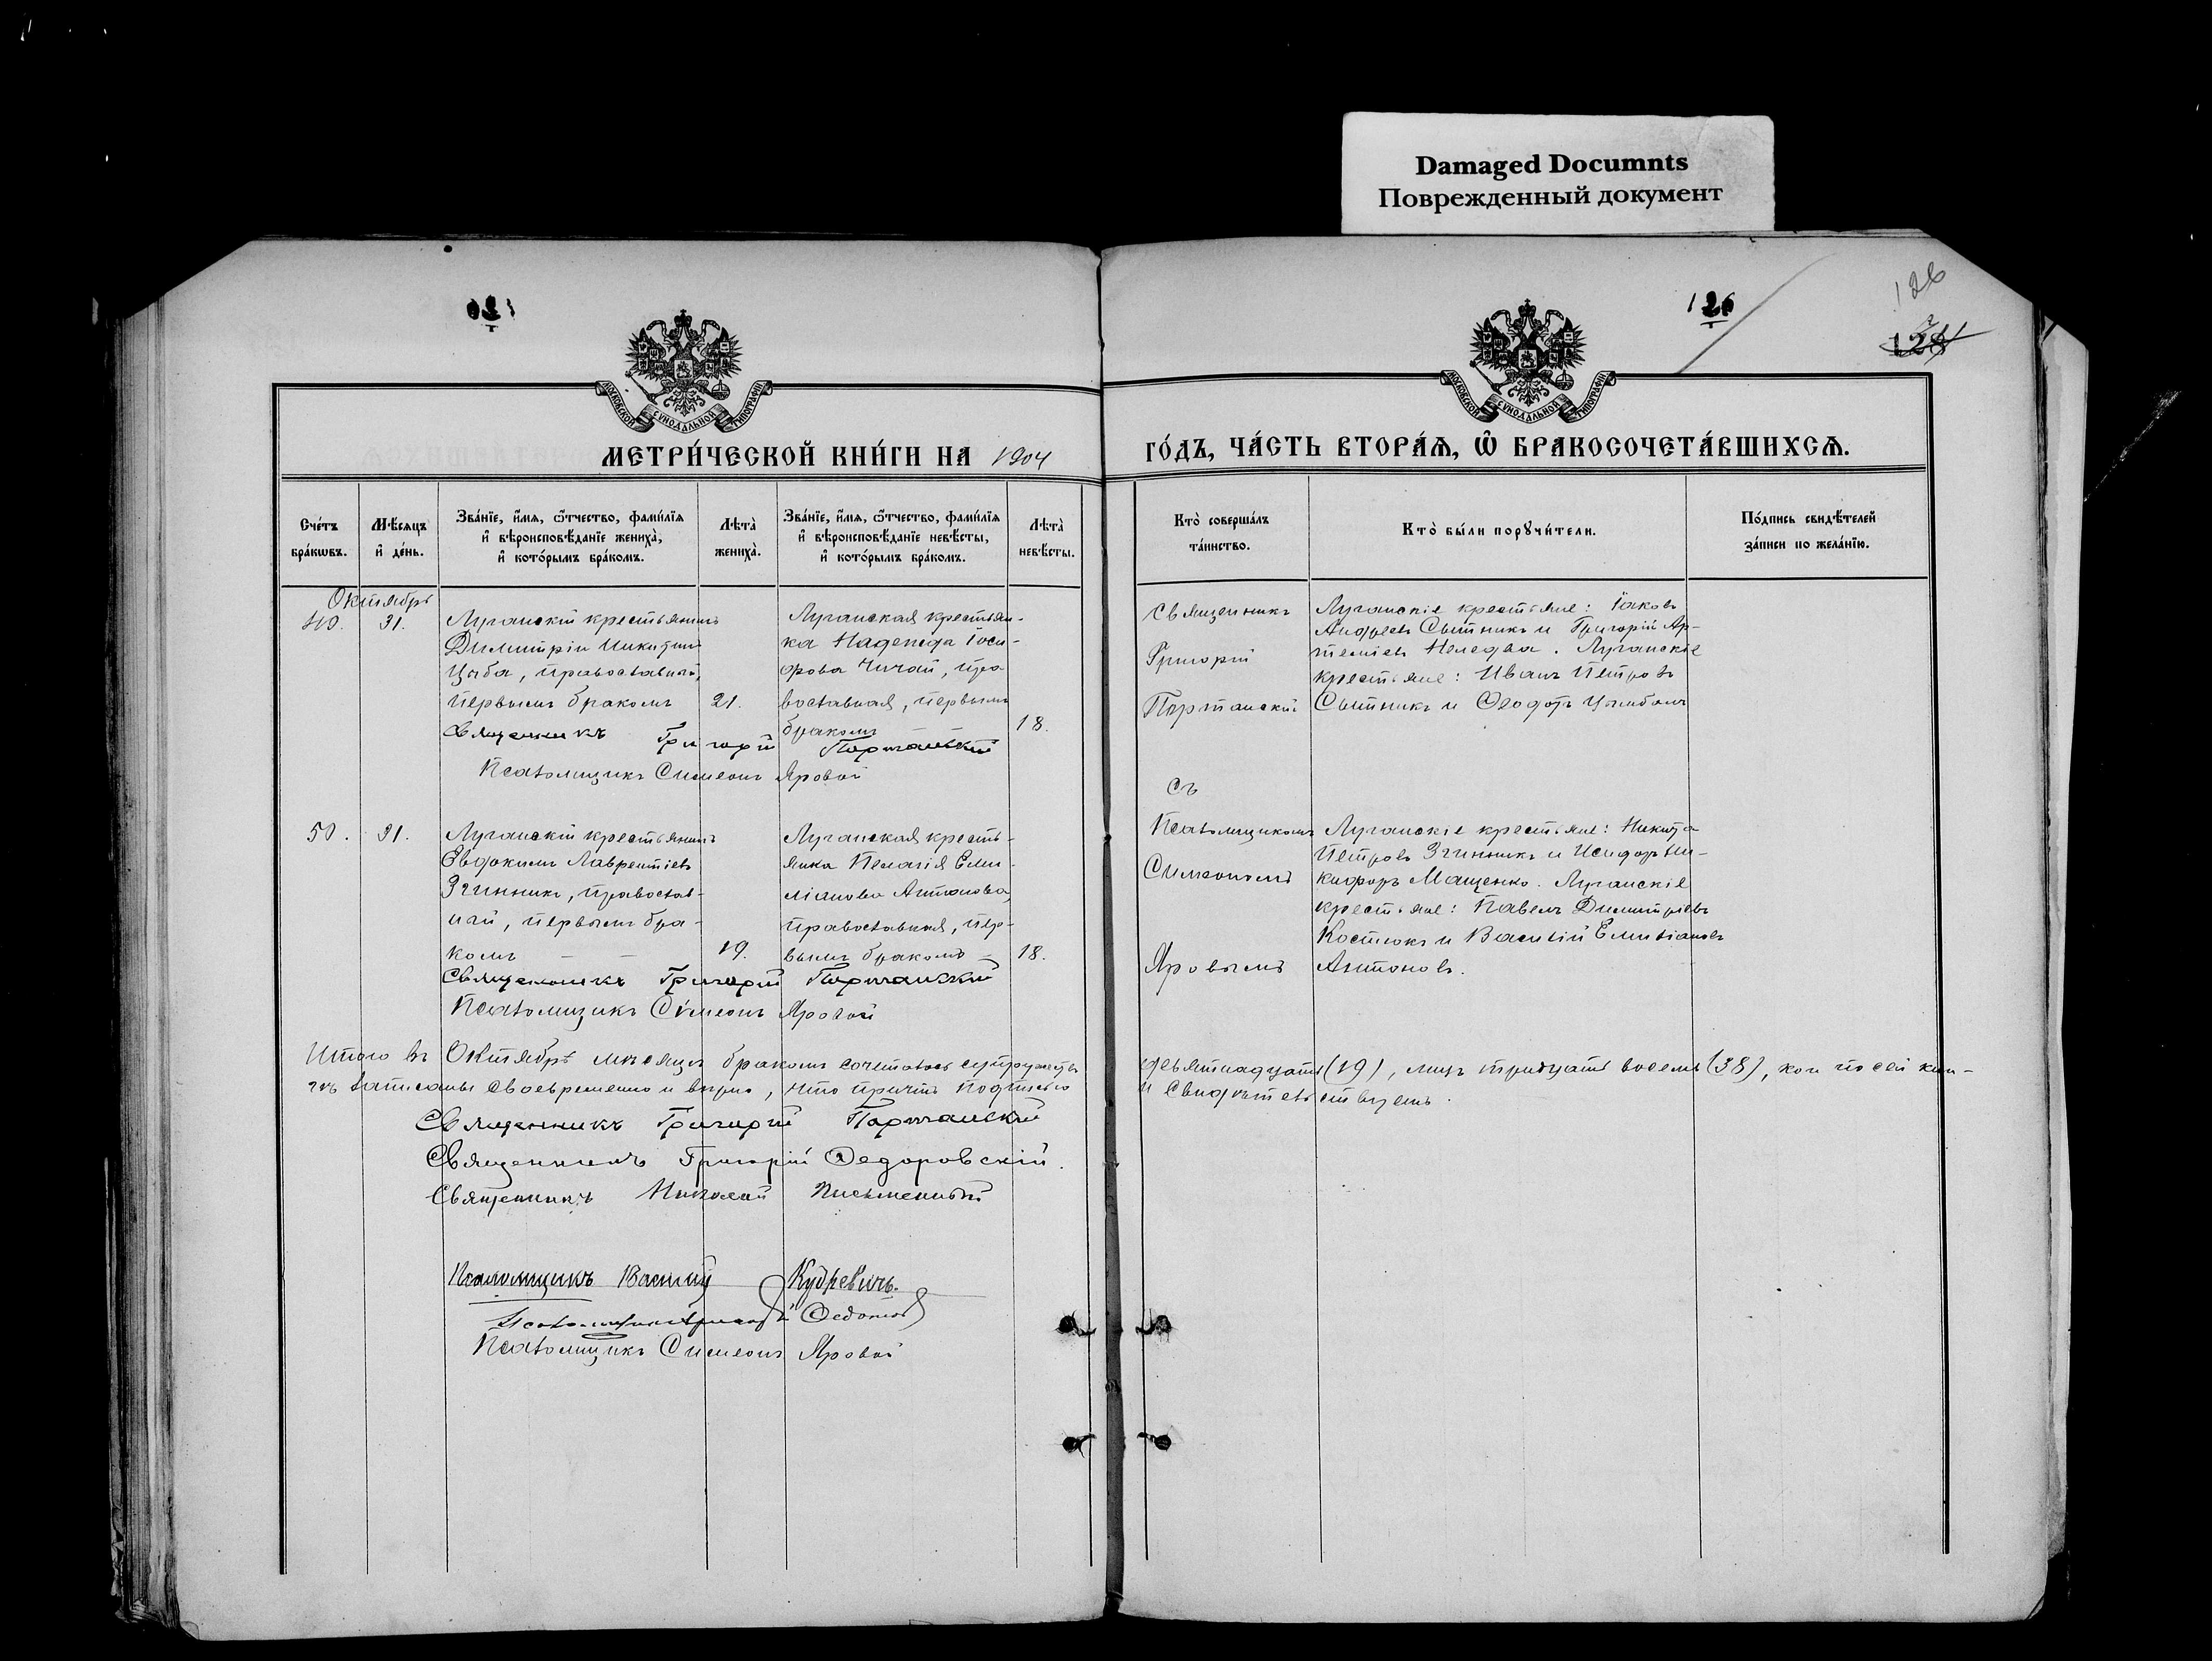 Damaged Documnts
Поврежденный документ
126
126
МОСКОВСКОЙ СѴНОДАЛЬНОЙ ТИПОГРАФІИ
МОСКОВСКОЙ СѴНОДАЛЬНОЙ ТИПОГРАФІИ
МЕТРИ́ЧЕСКОЙ КНИ́ГИ НА 1904
ГО́ДЪ, ЧА́СТЬ ВТОРА́Ѧ, Ѽ БРАКОСОЧЕТА́ВШИХСѦ.
Сче́тъ
бра́кωвъ.
Мѣ́сѧцъ
и҆ де́нь.
Зва́нїе, и҆́мѧ, ѻ҆́тчество, фами́лїѧ
и҆ вѣроисповѣ́данїе жениха̀,
и҆ кото́рымъ бра́комъ.
Лѣта̀
жениха̀.
Зва́нїе, и҆́мѧ, ѻ҆́тчество, фами́лїѧ
и҆ вѣроисповѣ́данїе невѣ́сты,
и҆ кото́рымъ бра́комъ.
Лѣта̀
невѣ́сты.
Кто̀ соверша́лъ
та́инство.
Кто̀ бы́ли порꙋчи́тели.
По́дпись свидѣ́телей
за́писи по жела́нїю.
Октябрь
31.
Луганскій крестьянинъ
Димитрій Никитинъ
Цыба, православный,
первымъ бракомъ
21.
Луганская крестьян-
ка Надежда Іоси-
фова Чичай, пра
вославная, первымъ
бракомъ
18.
Священникъ Григорій Портанскій
Псаломщикъ Симеонъ Яровой
Священникъ
Григорій
Портанскій
съ
Псаломщикомъ
Симеономъ
Яровымъ
Луганскіе крестьяне: Іаковъ
Андреевъ Сытникъ и Григорій Ар-
теміевъ. Луганскіе
крестьяне: Иванъ Петровъ
Сытникъ и Ѳеодотъ Цымбалъ
50.
31.
Луганскій крестьянинъ
Евдокимъ Лаврентіевъ
Згинникъ, православ-
ный, первымъ бра-
комъ
19.
Луганская кресть-
янка Пелагія Еми-
ліанова Антонова,
православная, пер-
вымъ бракомъ
18.
Священникъ Григорій Портанскій
Псаломщикъ Симеонъ Яровой
Луганскіе крестьяне: Никита
Петровъ Згинникъ и Исидоръ Ни-
кифоръ Мащенко. Луганскіе
крестьяне: Павелъ Димитріевъ
Костюкъ и Василій Емиліановъ
Антоновъ.
Итого въ Октябрѣ мѣсяцѣ бракомъ сочеталось супружествъ девятнадцать (19), лицъ тридцать восемь (38), кои по сей кни-
гѣ записаны своевременно и вѣрно, что причтъ подписью и свидѣтельствуемъ.
Священникъ Григорій Портанскій
Священникъ Григорій Ѳедоровскій.
Священникъ Николай Письменный
Псаломщикъ Василій Кудревичъ.
Псаломщикъ Ѳедотов
Псаломщикъ Симеонъ Яровой